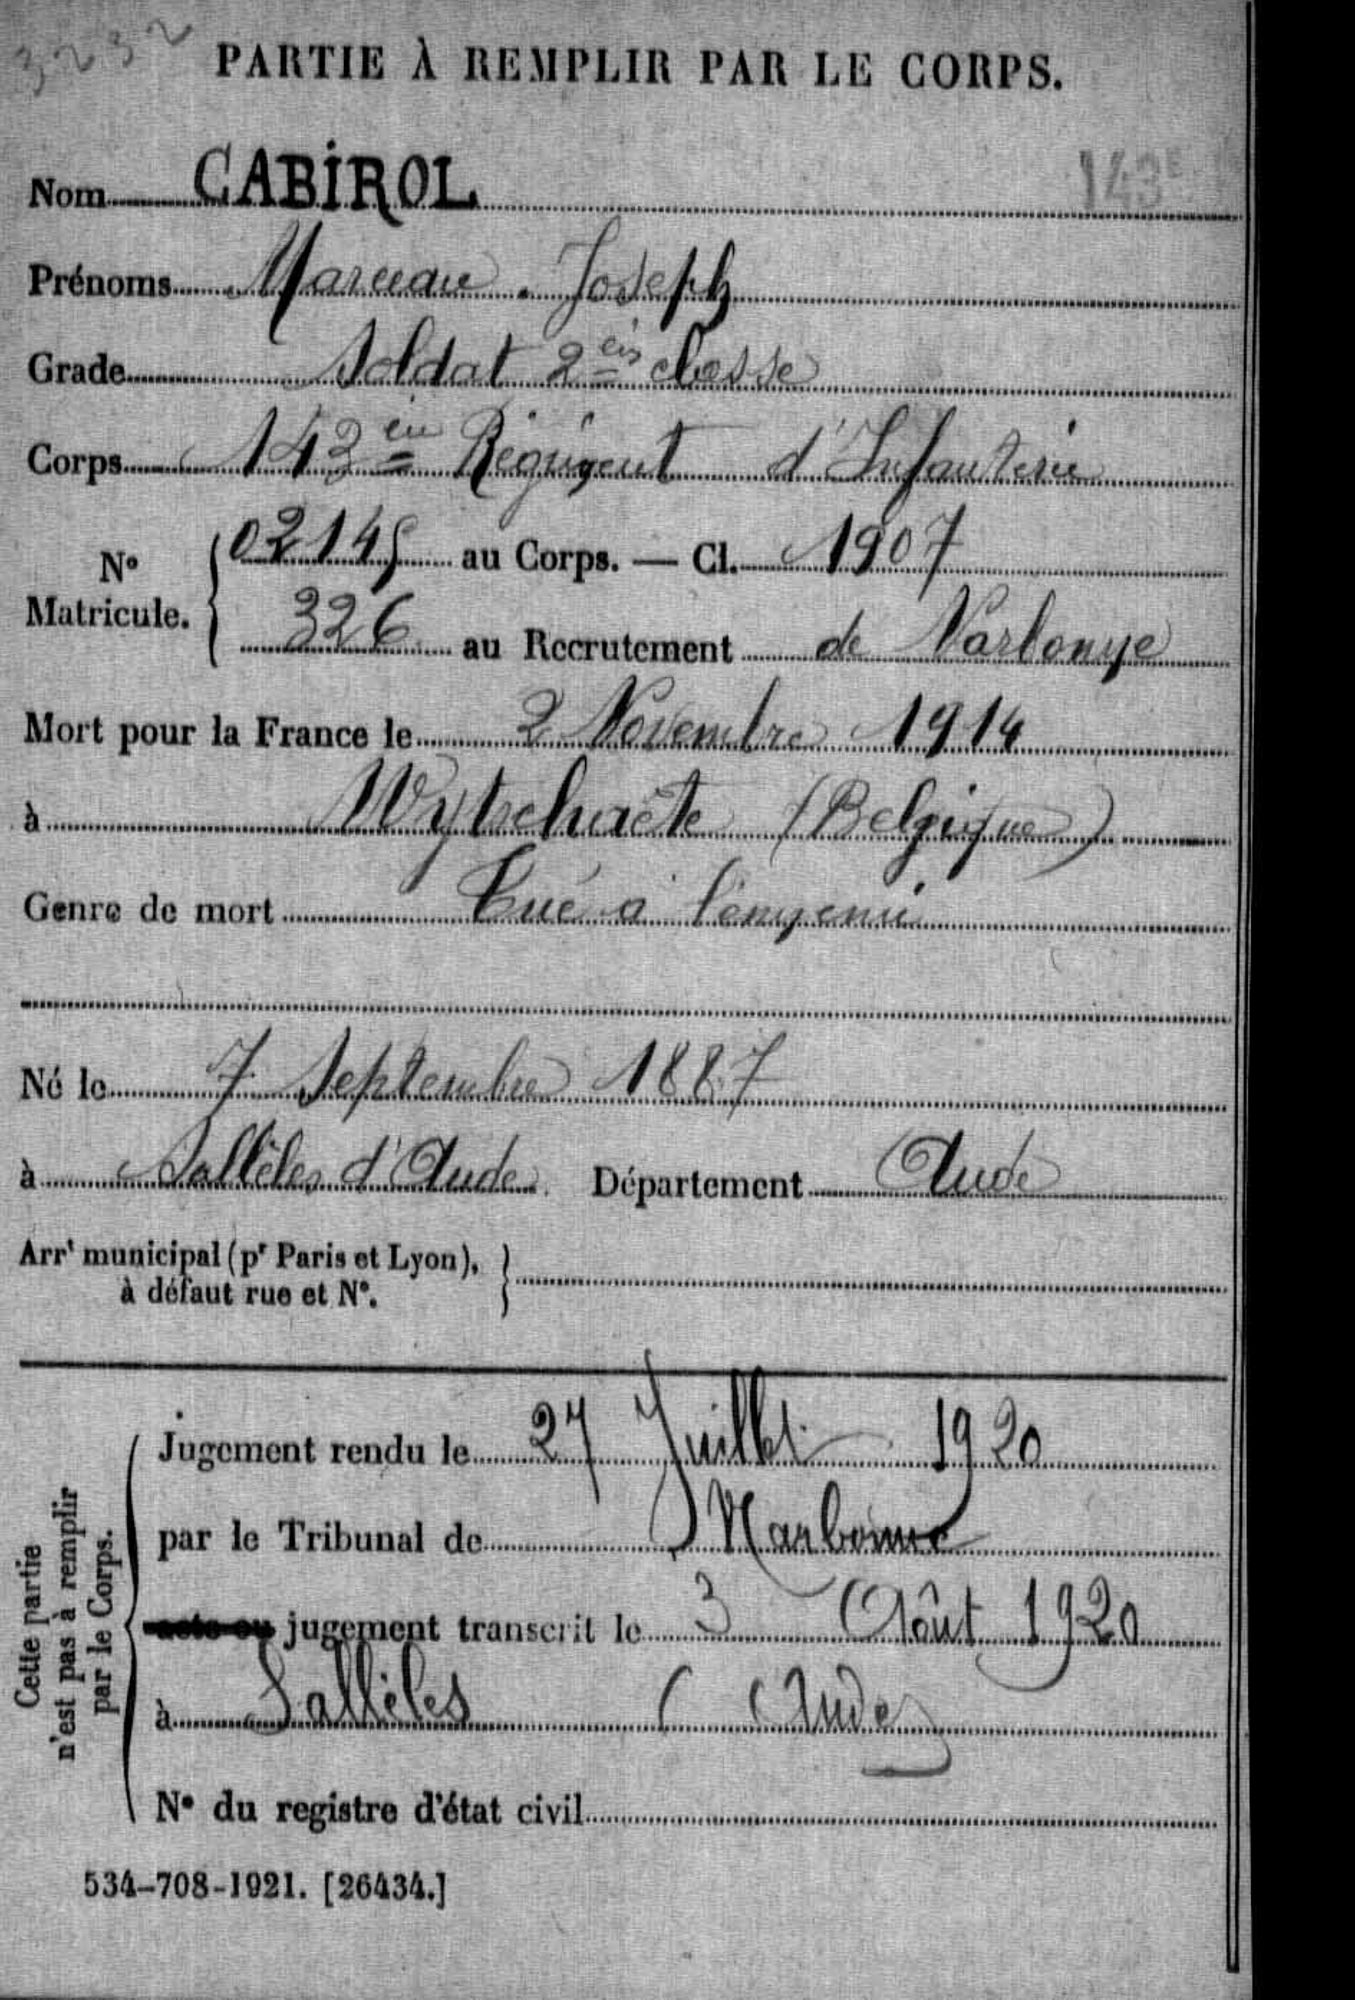 3232
PARTIE À REMPLIR PAR LE CORPS.
Nom CABIROL
143E
Prénoms Marceau . Joseph
Grade Soldat 2e classe
Corps 143ème Régiment d'Infanterie
No Matricule. { 02145 au Corps. — Cl. 1907
326 au Recrutement de Narbonne
Mort pour la France le 2 Novembre 1914
à Wytschaète (Belgique)
Genre de mort Tué à l'ennemi
Né le 7 Septembre 1887
à Sallèles d'Aude. Département Aude
Arrt municipal (pr Paris et Lyon), }
à défaut rue et No.
Cette partie
n'est pas à remplir
par le Corps.
Jugement rendu le 27 Juillet 1920
par le Tribunal de Narbonne
acte ou jugement transcrit le 3 Août 1920
à Sallèles (Aude)
No du registre d'état civil
534-708-1921. [26434.]